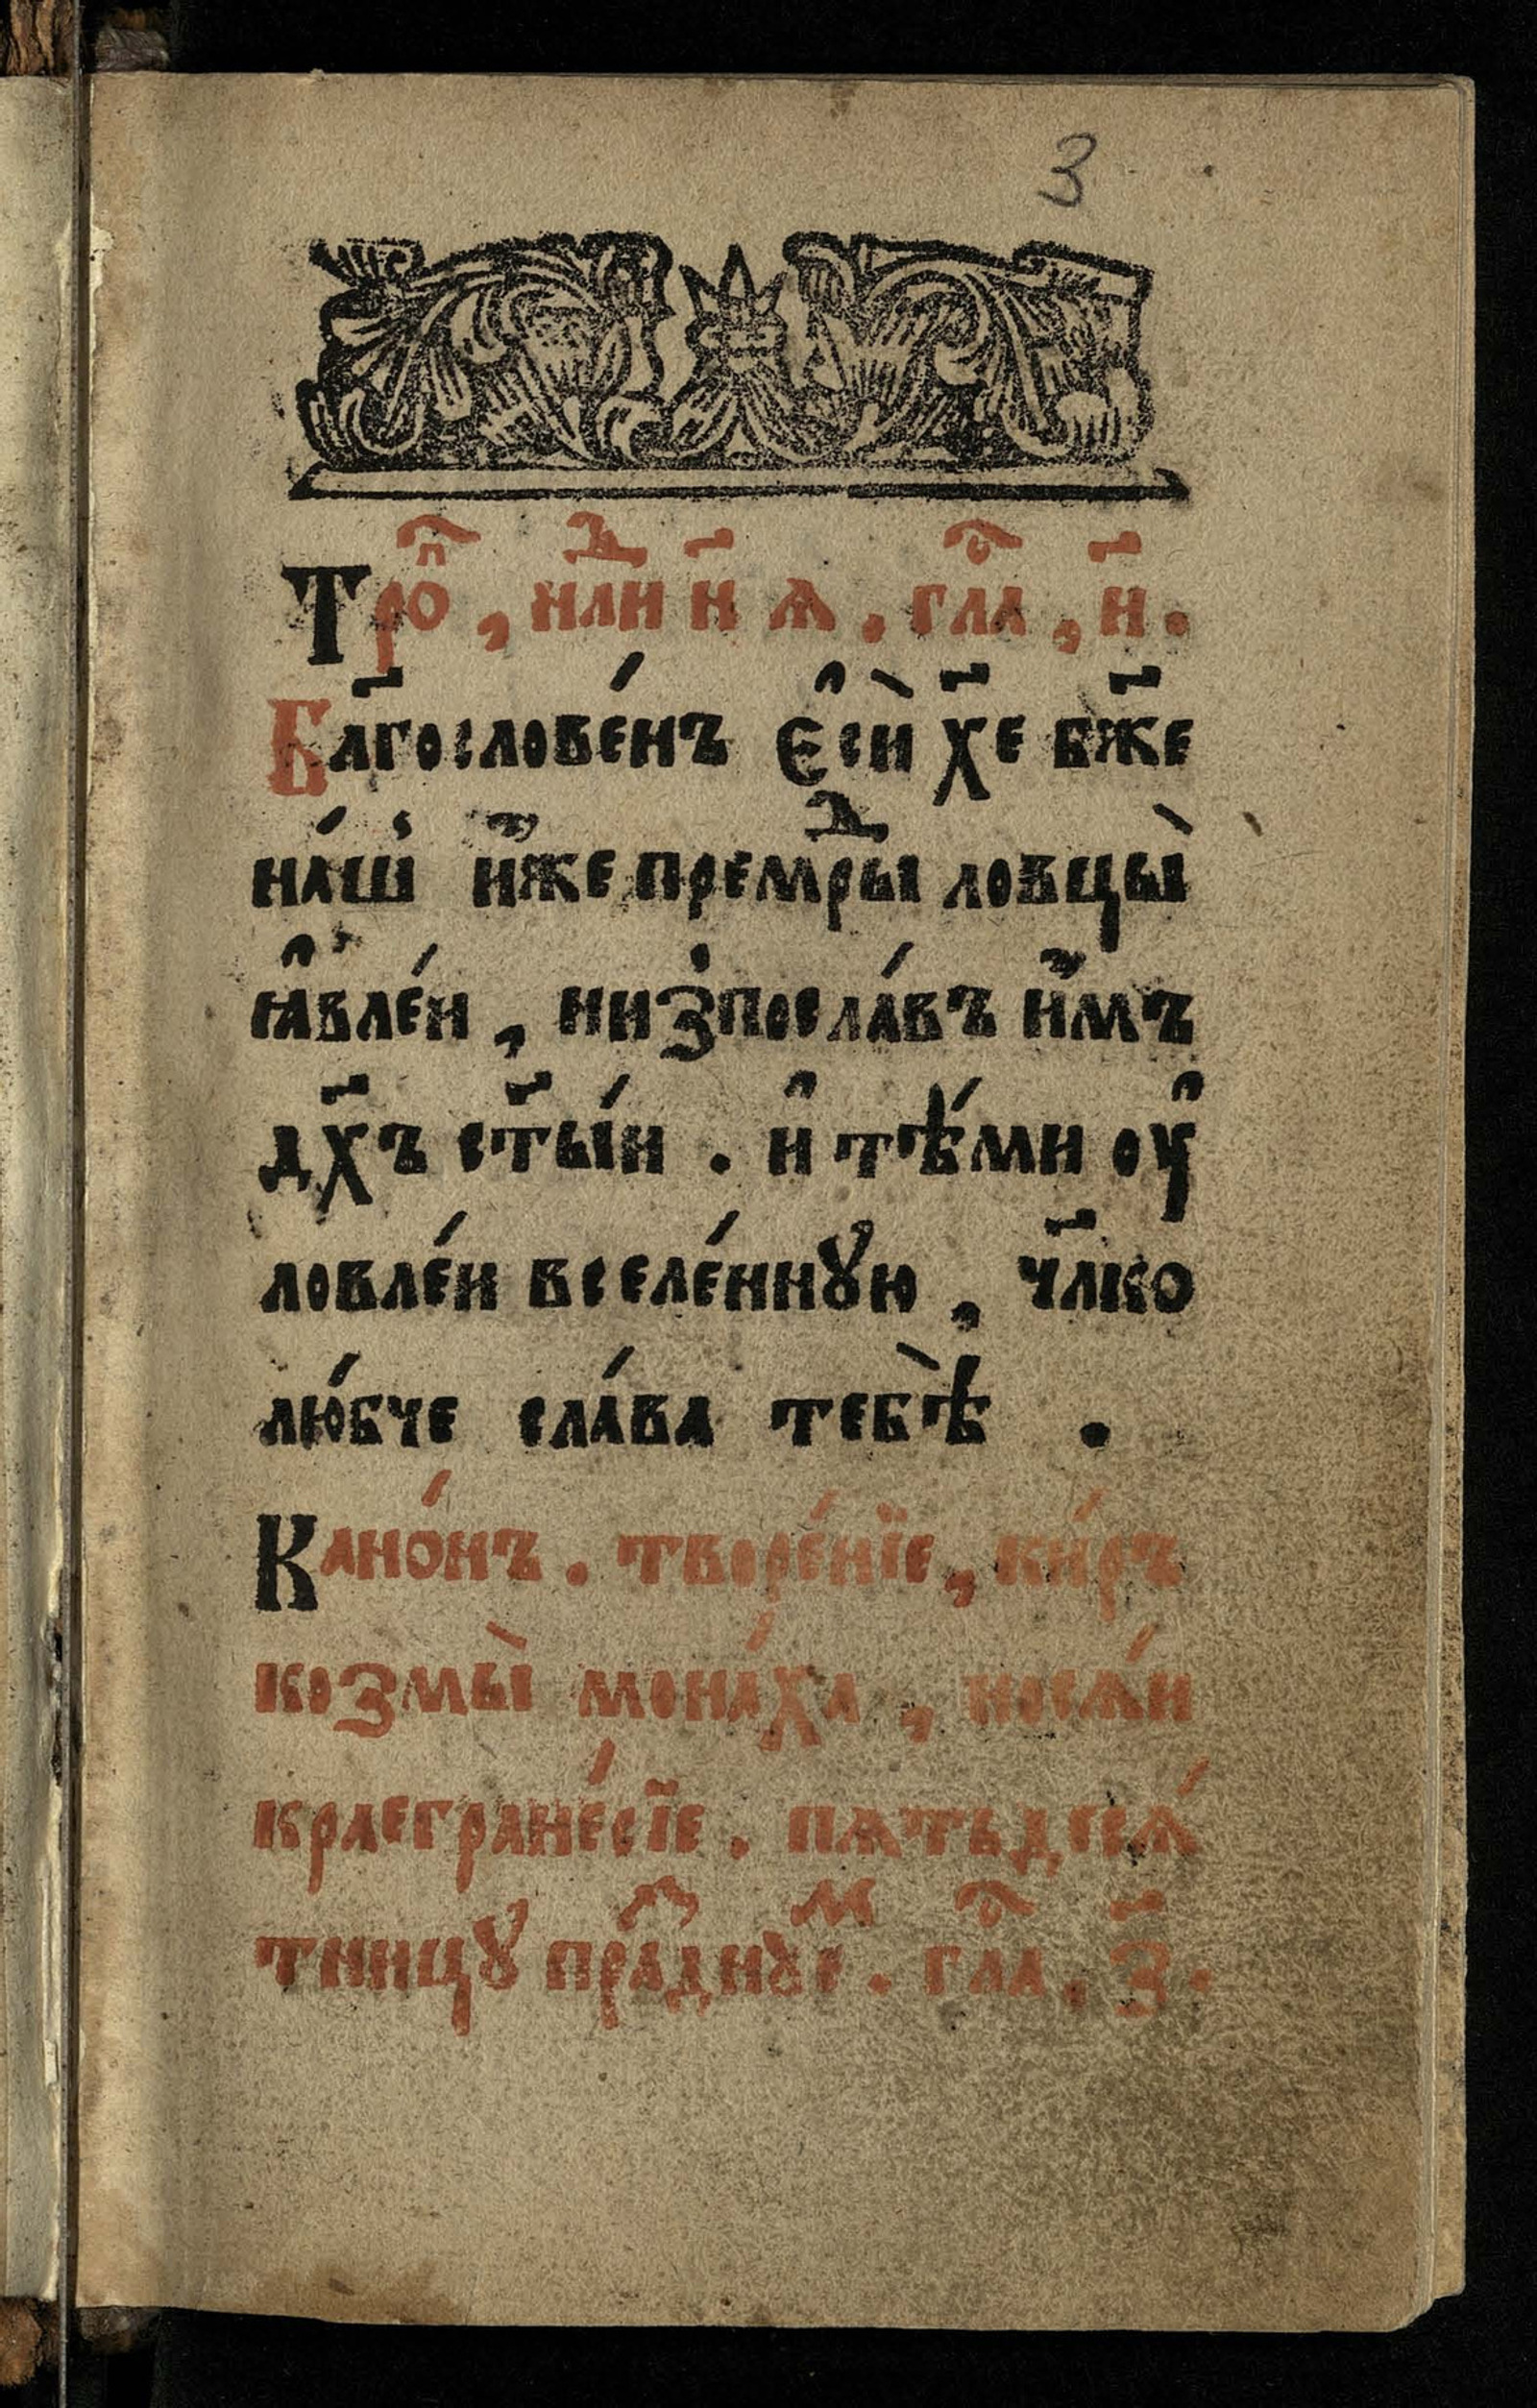 3
Троⷫ҇, нлиⷣ н҃ ѧ. глаⷭ҇, и҃.
Бл҃гослове́нъ є҆сѝ хр҃е бж҃е
на́ш и҆́же премⷣры ловцы̀
ꙗ҆вле́и, низпосла́въ и҆̀мъ
дх҃ъ ст҃ы́и. и҆ тѣ́ми оу҆
ловле́и вселе́ннꙋю, чл҃ко
лю́бче сла́ва тебѣ̀.
Кано́нъ. творе́нїе, ки́ръ
козмы̀ мона́ха, носѧ́и
краегране́сїе. пѧтьдесѧ́
тницꙋ праⷥ҇днꙋеⷨ. глаⷭ҇, з҃.